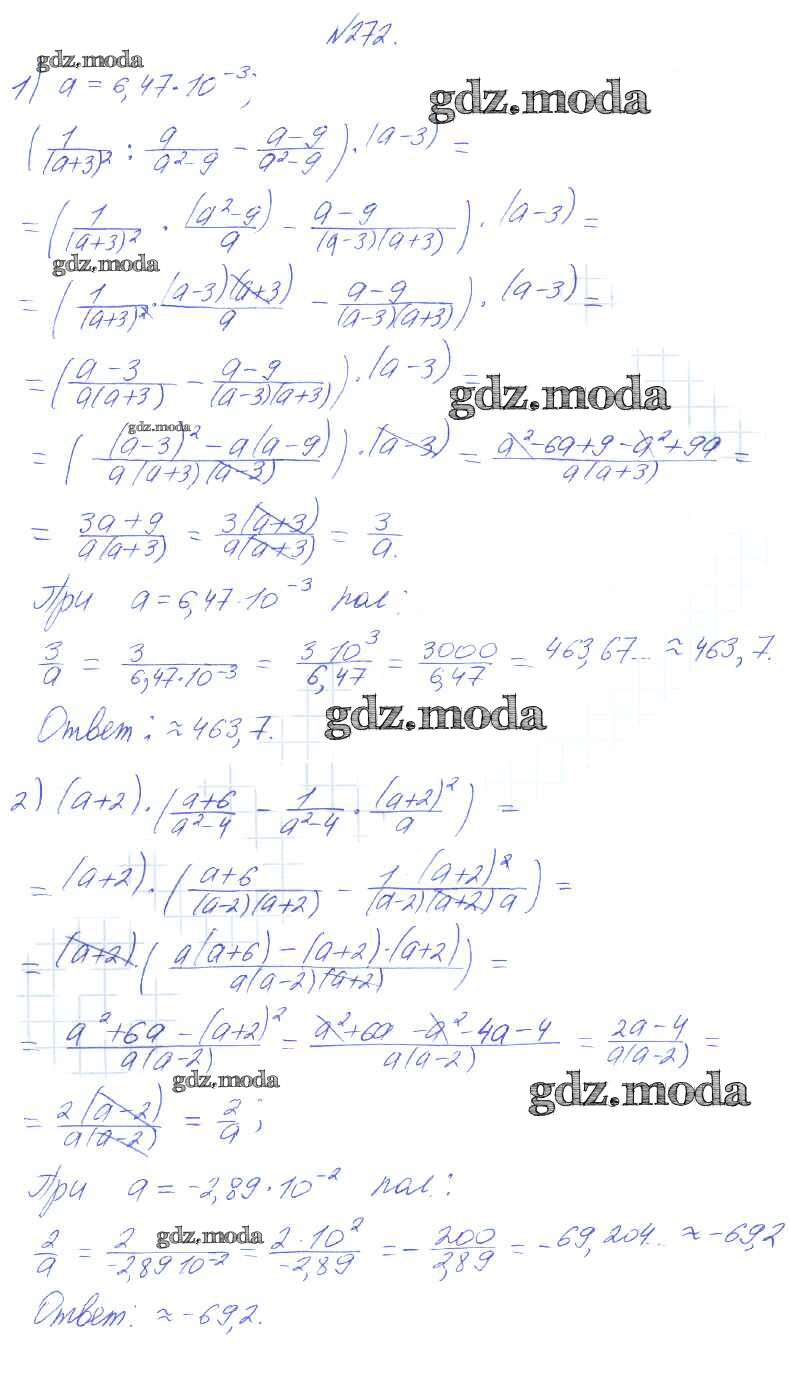 №272.
gdz.moda
1) a = 6,47·10⁻³;
gdz.moda
(1/(a+3)² : a/(a²-9) - (a-9)/(a²-9))·(a-3) =
= (1/(a+3)² · (a²-9)/a - (a-9)/((a-3)(a+3)))·(a-3) =
gdz.moda
= (1/(a+3)² · (a-3)(a+3)/a - (a-9)/((a-3)(a+3)))·(a-3) =
= ((a-3)/(a(a+3)) - (a-9)/((a-3)(a+3)))·(a-3) =
gdz.moda
gdz.moda
= (((a-3)² - a(a-9))/(a(a+3)(a-3)))·(a-3) = (a²-6a+9-a²+9a)/(a(a+3)) =
= (3a+9)/(a(a+3)) = 3(a+3)/(a(a+3)) = 3/a.
При a = 6,47·10⁻³ пол:
3/a = 3/(6,47·10⁻³) = 3·10³/6,47 = 3000/6,47 = 463,67... ≈ 463,7.
Ответ: ≈ 463,7.
gdz.moda
2) (a+2)·((a+6)/(a²-4) - 1/(a²-4) · (a+2)²/a) =
= (a+2)·((a+6)/((a-2)(a+2)) - 1·(a+2)²/((a-2)(a+2)a)) =
= (a+2)·((a(a+6) - (a+2)·(a+2))/(a(a-2)(a+2))) =
= (a²+6a-(a+2)²)/(a(a-2)) = (a²+6a-a²-4a-4)/(a(a-2)) = (2a-4)/(a(a-2)) =
gdz.moda
gdz.moda
= 2(a-2)/(a(a-2)) = 2/a;
При a = -2,89·10⁻² пол.:
gdz.moda
2/a = 2/(-2,89·10⁻²) = 2·10²/(-2,89) = -200/2,89 = -69,204... ≈ -69,2
Ответ: ≈ -69,2.